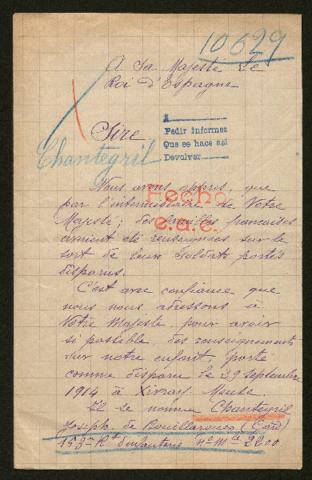 10629
A Sa Majesté Le
Roi d'Espagne
Sire
A
Pedir informes
Que se hace asi
Devolver
Chantegril
Nous avons appris, que
par l'intermédiaire de Votre
Majesté, des familles françaises
avaient été renseignées sur le
sort de leurs soldats portés
disparus.
Fecho
e.a.e.
C'est avec confiance que
nous nous adressons à
Votre Majesté pour avoir
si possible, des renseignements
sur notre enfant, porté
comme disparu le 29 septembre
1914 à Xivray - Meuse.
Il se nomme Chantegril
Joseph, de Bouillargues (Gard)
153me Rt d'infanterie No Mle 2200